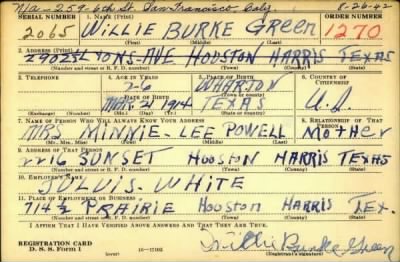 N/A - 259 - 6th St. San Francisco, Caly. 8-26-42
SERIAL NUMBER 1. NAME (Print) ORDER NUMBER
2065 WILLIE BURKE GREEN 1270
(First) (Middle) (Last)
2. ADDRESS (Print)
HOUSTON HARRIS TEXAS
(Number and street or R. F. D. number) (Town) (County) (State)
3. TELEPHONE 4. AGE IN YEARS 5. PLACE OF BIRTH 6. COUNTRY OF CITIZENSHIP
26 WHARTON
DATE OF BIRTH (Town or county)
MAR. 21 1914 TEXAS U.S.
(Exchange) (Number) (Mo.) (Day) (Yr.) (State or country)
7. NAME OF PERSON WHO WILL ALWAYS KNOW YOUR ADDRESS 8. RELATIONSHIP OF THAT PERSON
MRS MINNIE - LEE POWELL MOTHER
(Mr., Mrs., Miss) (First) (Middle) (Last)
9. ADDRESS OF THAT PERSON
2216 SUNSET HOUSTON HARRIS TEXAS
(Number and street or R. F. D. number) (Town) (County) (State)
10. EMPLOYER'S NAME
JULUIS - WHITE
11. PLACE OF EMPLOYMENT OR BUSINESS
714½ PRAIRIE HOUSTON HARRIS TEX.
(Number and street or R. F. D. number) (Town) (County) (State)
I AFFIRM THAT I HAVE VERIFIED ABOVE ANSWERS AND THAT THEY ARE TRUE.
REGISTRATION CARD
D. S. S. Form 1 16-17105 Willie Burke Green